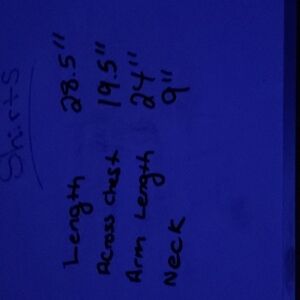 Shirts
Length 28.5"
Across chest 19.5"
Arm Length 24"
Neck 9"